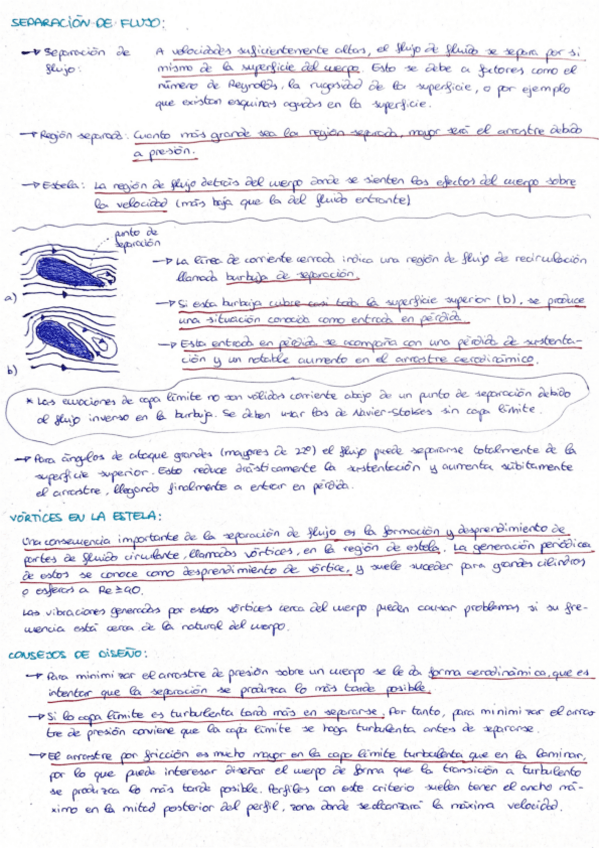 SEPARACIÓN DE FLUJO:
→ Separación de flujo: A velocidades suficientemente altas, el flujo de fluido se separa por si
mismo de la superficie del cuerpo. Esto se debe a factores como el
número de Reynolds, la rugosidad de la superficie, o por ejemplo
que existan esquinas agudas en la superficie.
→ Región separada: Cuanto más grande sea la región separada, mayor será el arrastre debido
a presión.
→ Estela: La región de flujo detrás del cuerpo donde se sienten los efectos del cuerpo sobre
la velocidad (más baja que la del fluido entrante)
punto de
separación
a)
b)
→ La línea de corriente cerrada indica una región de flujo de recirculación
llamada burbuja de separación.
→ Si esta burbuja cubre casi toda la superficie superior (b), se produce
una situación conocida como entrada en pérdida.
→ Esta entrada en pérdida se acompaña con una pérdida de sustenta-
ción y un notable aumento en el arrastre aerodinámico.
* Las ecuaciones de capa límite no son válidas corriente abajo de un punto de separación debido
al flujo inverso en la burbuja. Se deben usar las de Navier-Stokes sin capa límite.
→ Para ángulos de ataque grandes (mayores de 22º) el flujo puede separarse totalmente de la
superficie superior. Esto reduce drásticamente la sustentación y aumenta súbitamente
el arrastre, llegando finalmente a entrar en pérdida.
VÓRTICES EN LA ESTELA:
Una consecuencia importante de la separación de flujo es la formación y desprendimiento de
partes de fluido circulante, llamadas vórtices, en la región de estela. La generación periódica
de estos se conoce como desprendimiento de vórtice, y suele suceder para grandes cilindros
o esferas a Re≥40.
Las vibraciones generadas por estos vórtices cerca del cuerpo pueden causar problemas si su fre-
cuencia está cerca de la natural del cuerpo.
CONSEJOS DE DISEÑO:
→ Para minimizar el arrastre de presión sobre un cuerpo se le da forma aerodinámica, que es
intentar que la separación se produzca lo más tarde posible.
→ Si la capa límite es turbulenta tarda más en separarse. Por tanto, para minimizar el arras
tre de presión conviene que la capa límite se haga turbulenta antes de separarse.
→ El arrastre por fricción es mucho mayor en la capa límite turbulenta que en la laminar,
por lo que puede interesar diseñar el cuerpo de forma que la transición a turbulento
se produzca lo más tarde posible. Perfiles con este criterio suelen tener el ancho má-
ximo en la mitad posterior del perfil, zona donde se alcanzará la máxima velocidad.